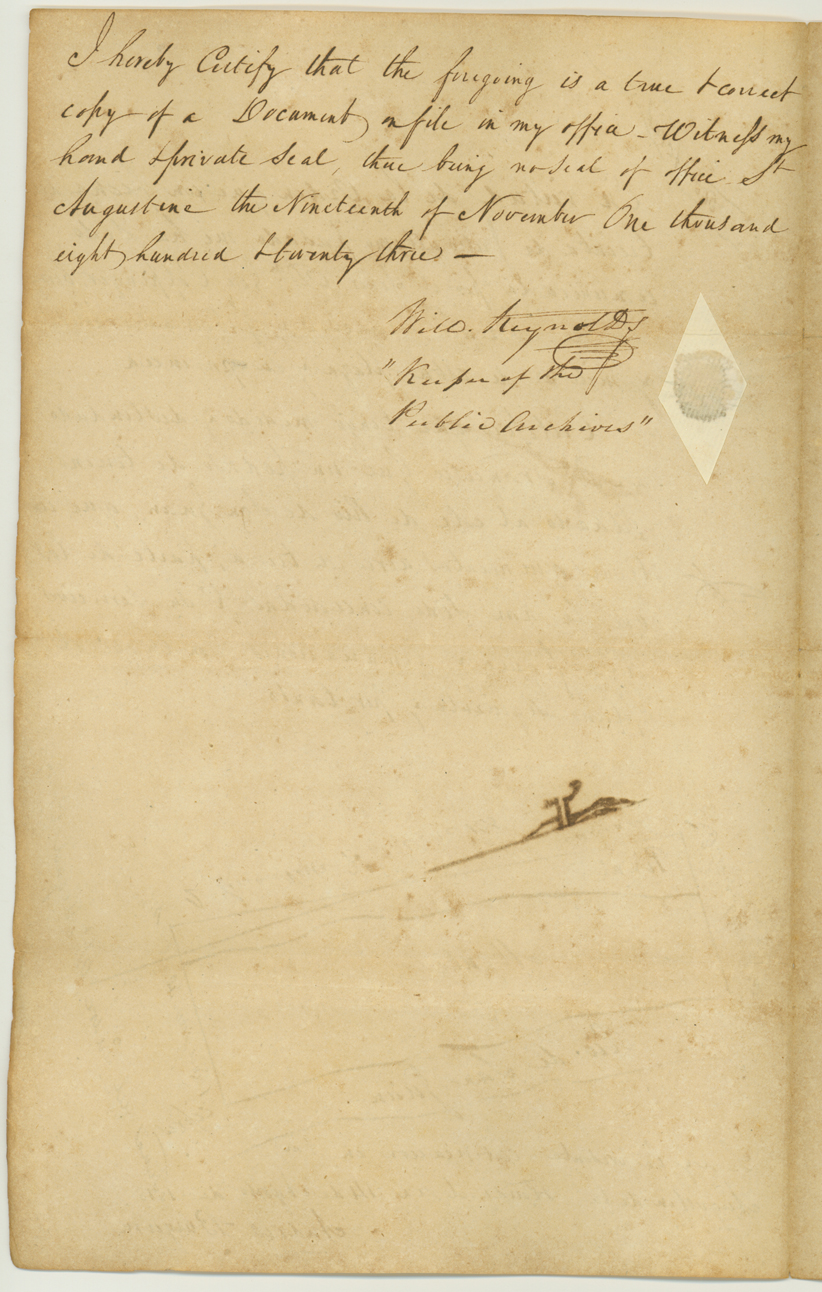 I hereby Certify that the foregoing is a true & correct
copy of a Document on file in my office - Witness my
hand & private Seal, there being no seal of office St
Augustine the Nineteenth of November One thousand
eight hundred & twenty three —
Will. Reynolds
"Keeper of the
Public Archives"